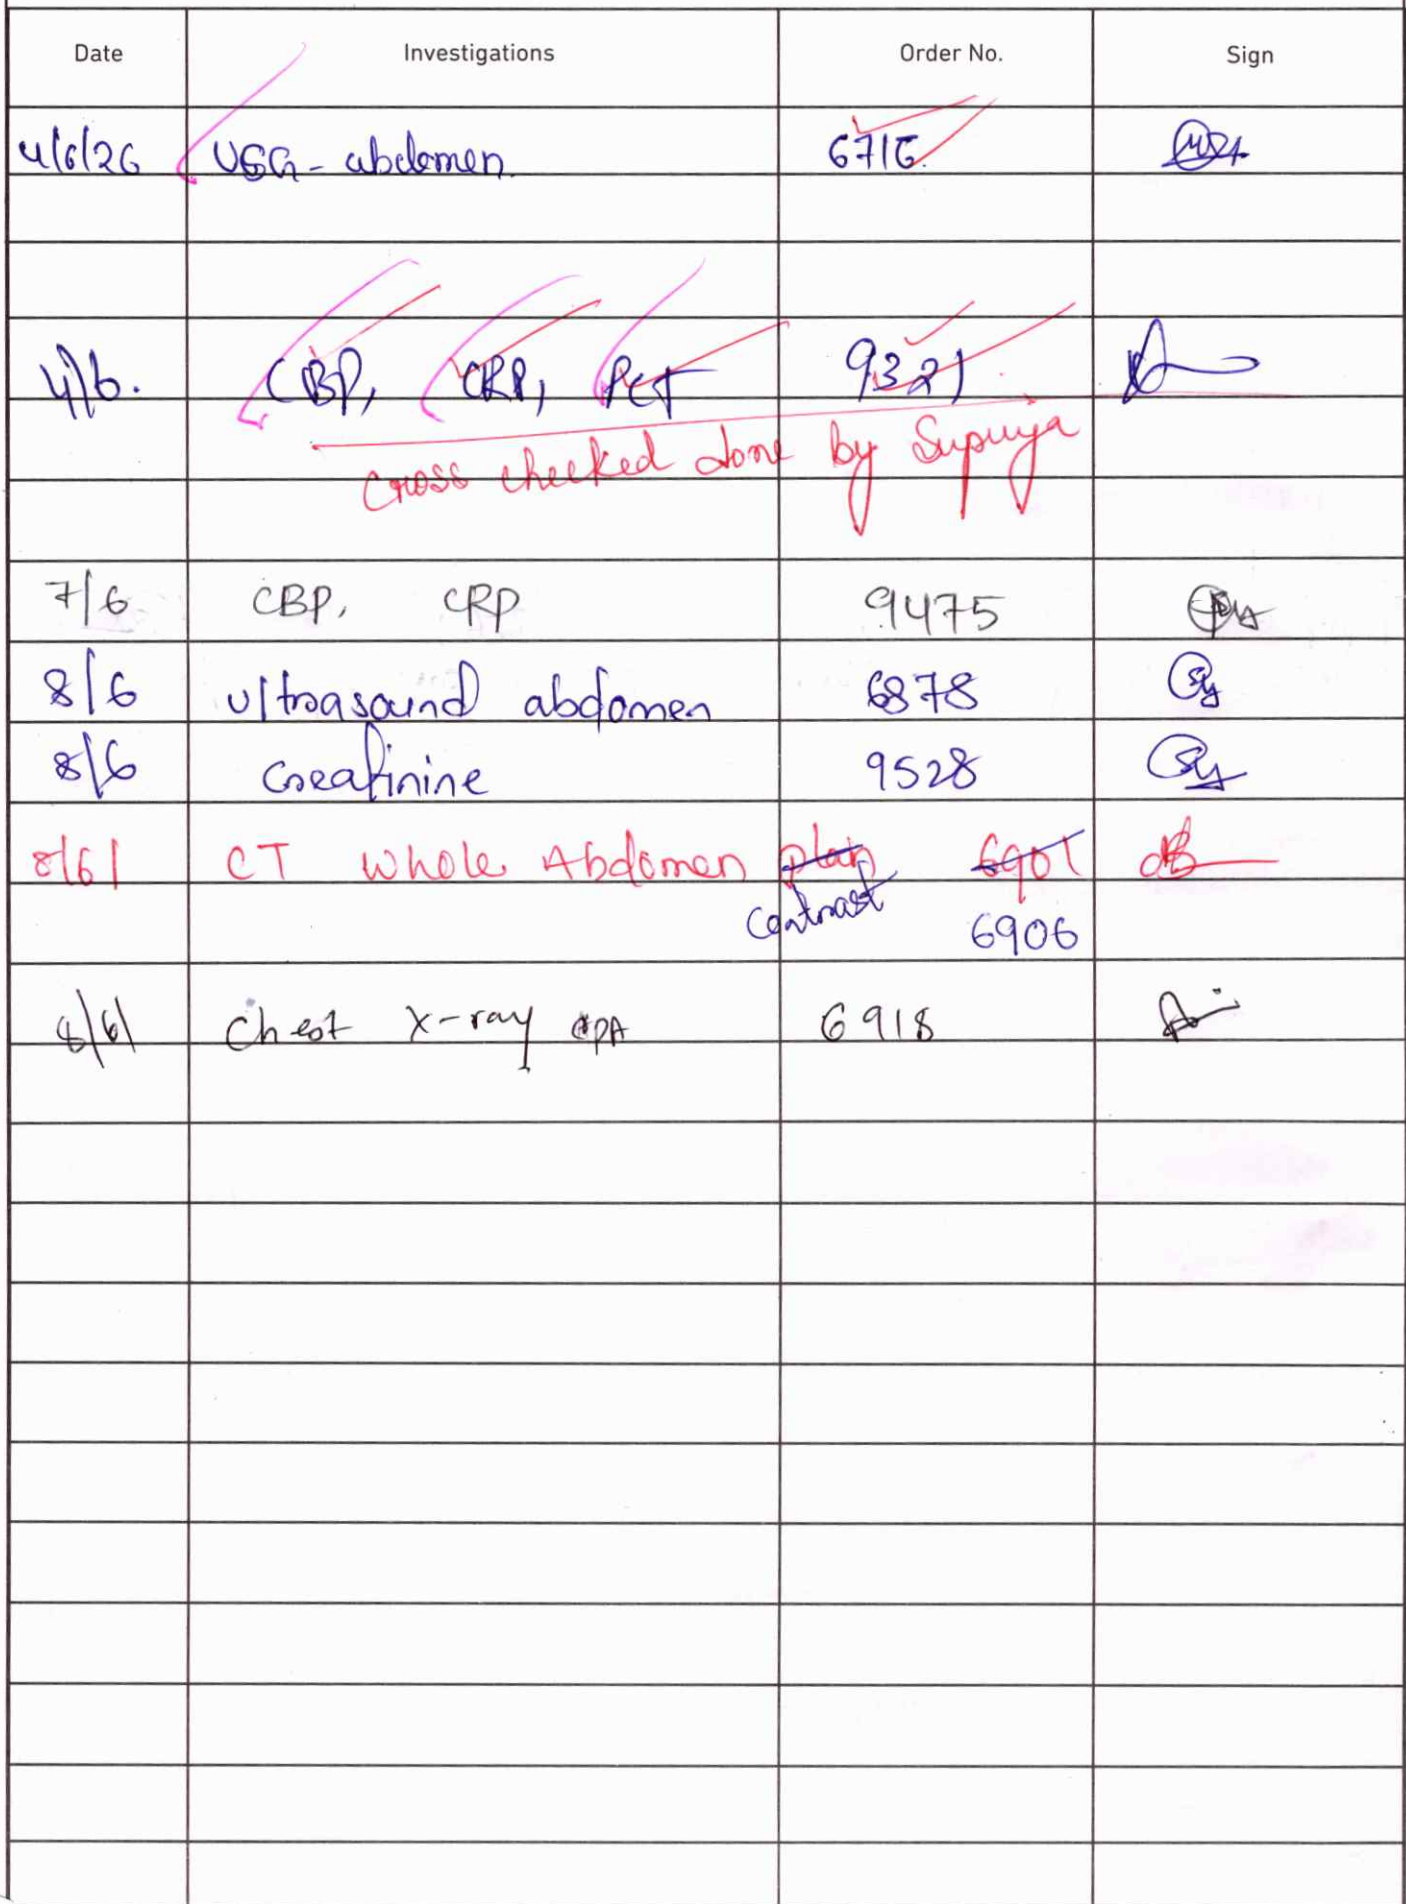 Date Investigations Order No. Sign
4/6/26 USG - abdomen. 6716.
4/6. CBP, CRP, PCT 9321
Cross checked done by Supuya
7/6 CBP, CRP 9475
8/6 Ultrasound abdomen 6878
8/6 Creatinine 9528
8/6/ CT Whole Abdomen plan 6901
Contrast 6906
8/6/ Chest X-ray PA 6918